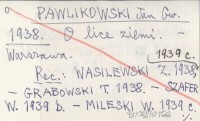 PAWLIKOWSKI Jan Gw.
1938. O lice ziemi. -
Warszawa. 1939 c.
Rec.: WASILEWSKI Z. 1938,
- GRABOWSKI T. 1938. - SZAFER
W. 1939 b. - MILESKI W. 1939 c.